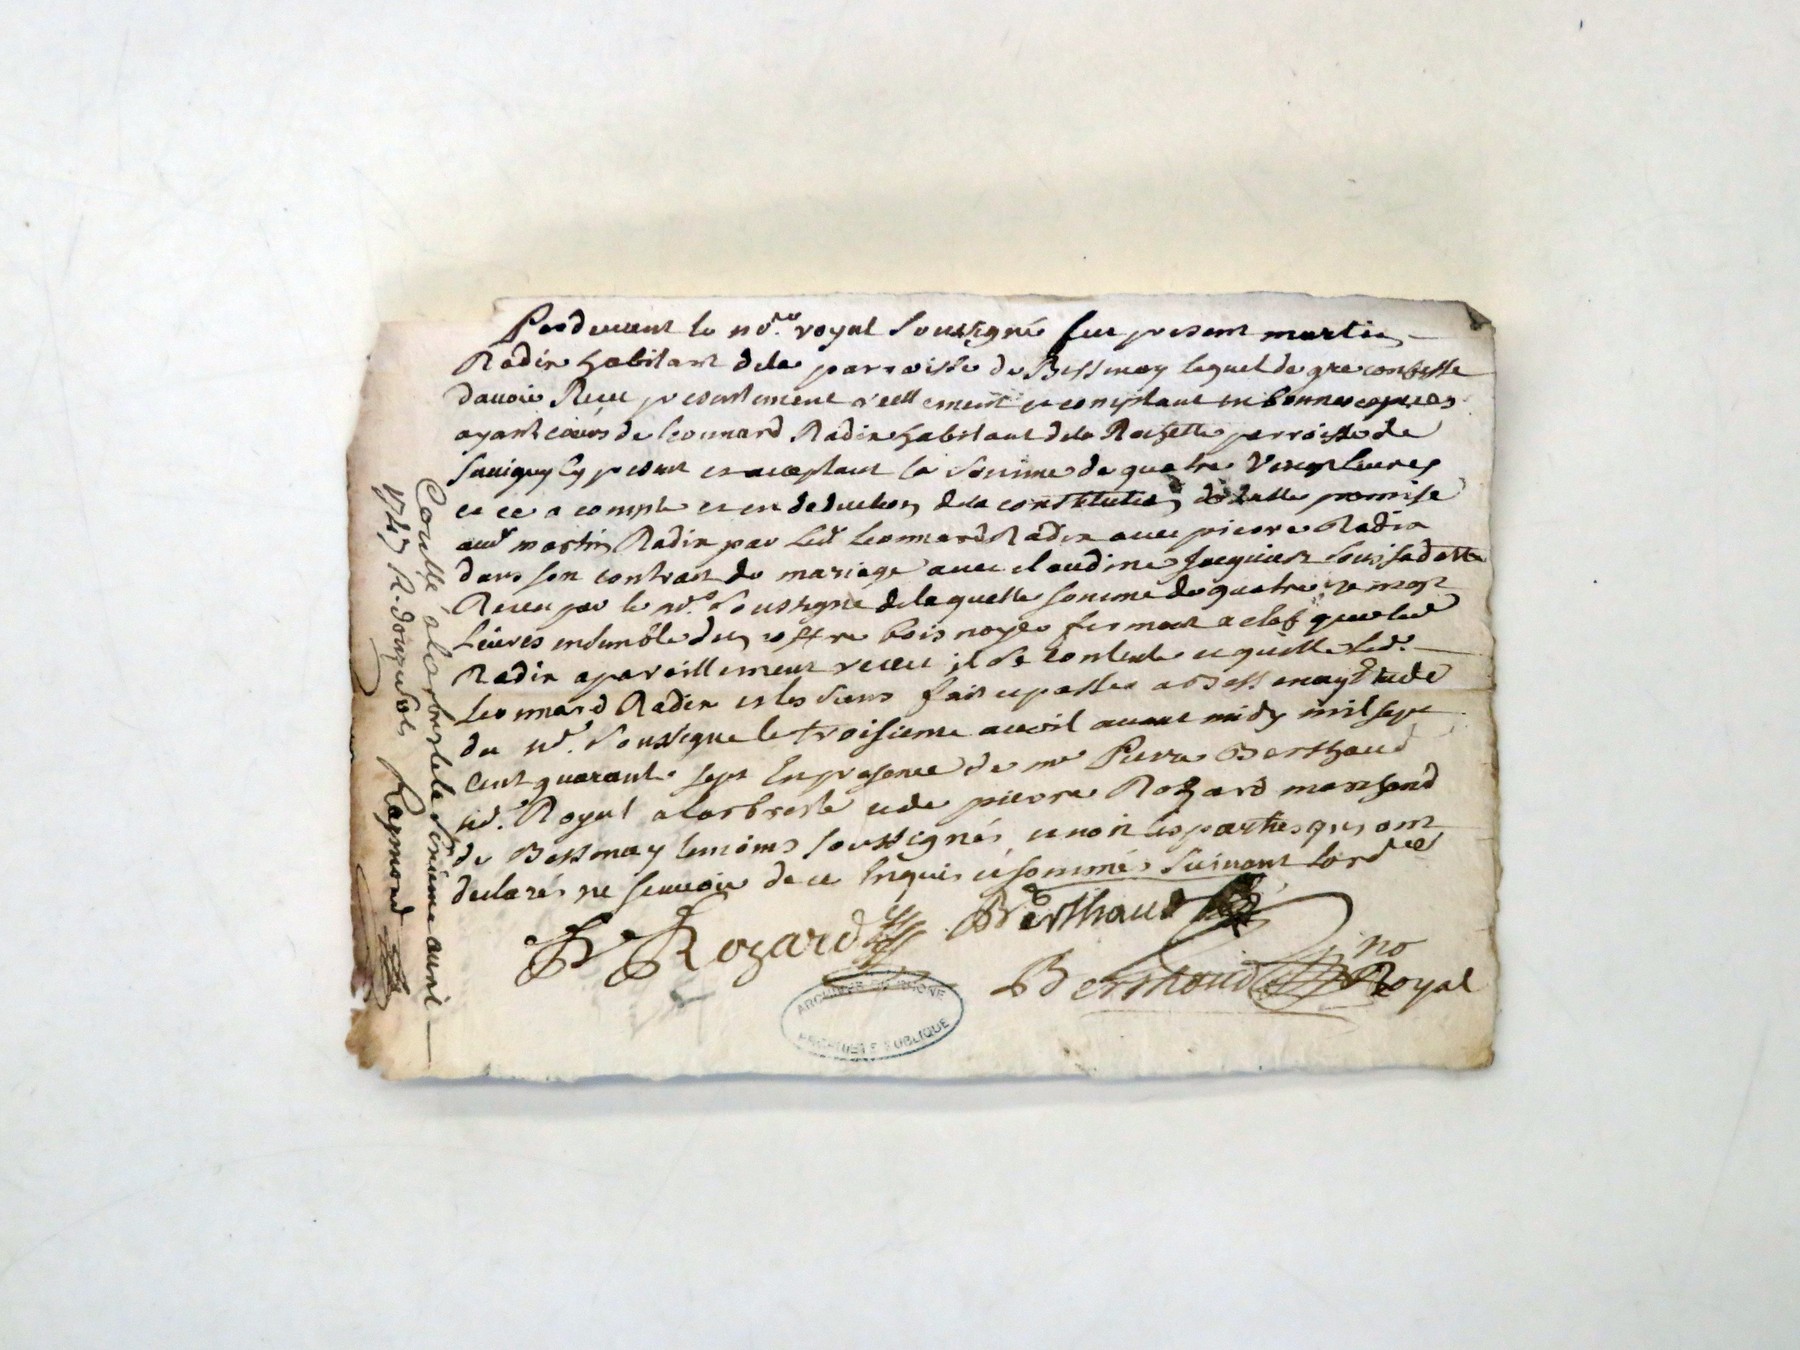 Pardevant le no.re royal soussigné fut present martin
Radix habitant de la parroisse de Bessenay lequel de gre confesse
davoir Receu presentement reellement et comptant en bonnes especes
ayant cours de leonnard Radix habitant de la Rochette parroisse de
Savigny cy present et acceptant la somme de quatre Vingt livres
et ce a compte et en deduction de la constitution dotalle promise
aud martin Radix par led leonnard Radix avec pierre Radix
dans son contrat de mariage avec claudine Jacquier
Receu par le no.re soussigné de laquelle somme de quatre vingt
livres ensemble dun coffre bois noyer fermant a clef que led
Radix a pareillement receu il se contente et quitte led.
Leonnard Radix et les siens fait et passé a Bessenay Etude
du no.re soussigné le troisieme avril avant midy mil sept
Cent quarante sept En presence de me Pierre Berthaud
no.re Royal a larbresle et de pierre Rozard marchand
de Bessenay temoins soussignés, et non les parties qui ont
declarés ne scavoir de ce Enquis et sommés suivant lord.ce
Pre Rozard Berthaud
Berthaud no Royal
ARCHIVES DU RHONE
PROPRIETE PUBLIQUE
Controllé a larbresle le avril
1747 R. douze sols Raymond